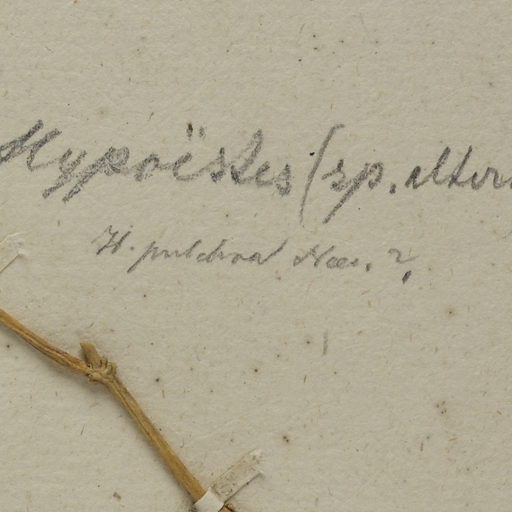 Hypoëstes (sp. altera
H. pulchra Nees. ?